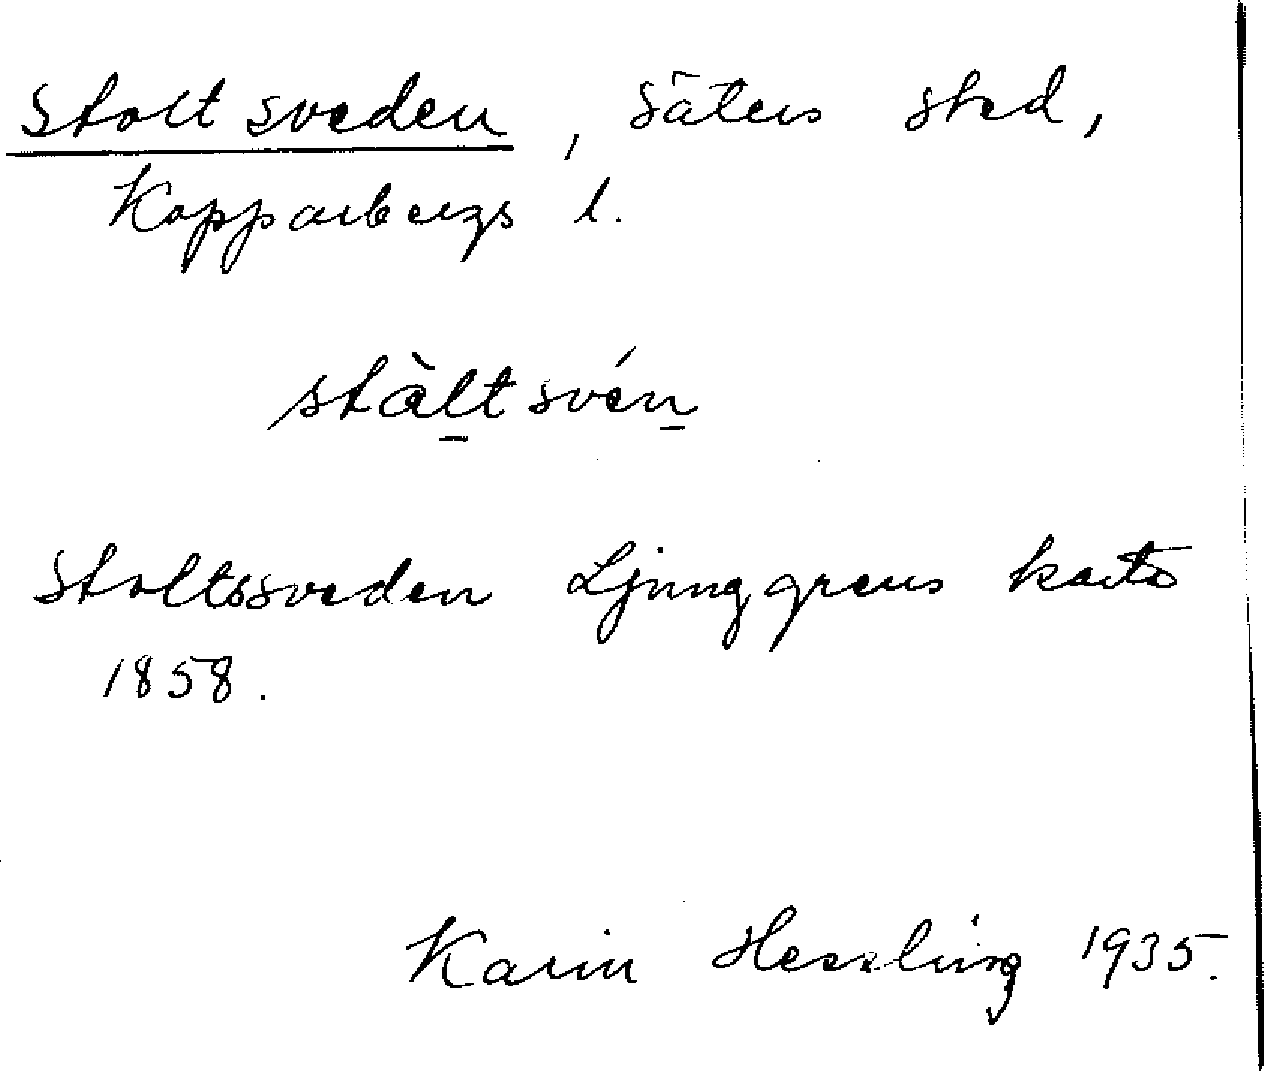 Stoltsveden, Säters stad,
Kopparbergs l.
stàltsvén
Stoltssveden Ljunggrens karta
1858.
Karin Hessling 1935.